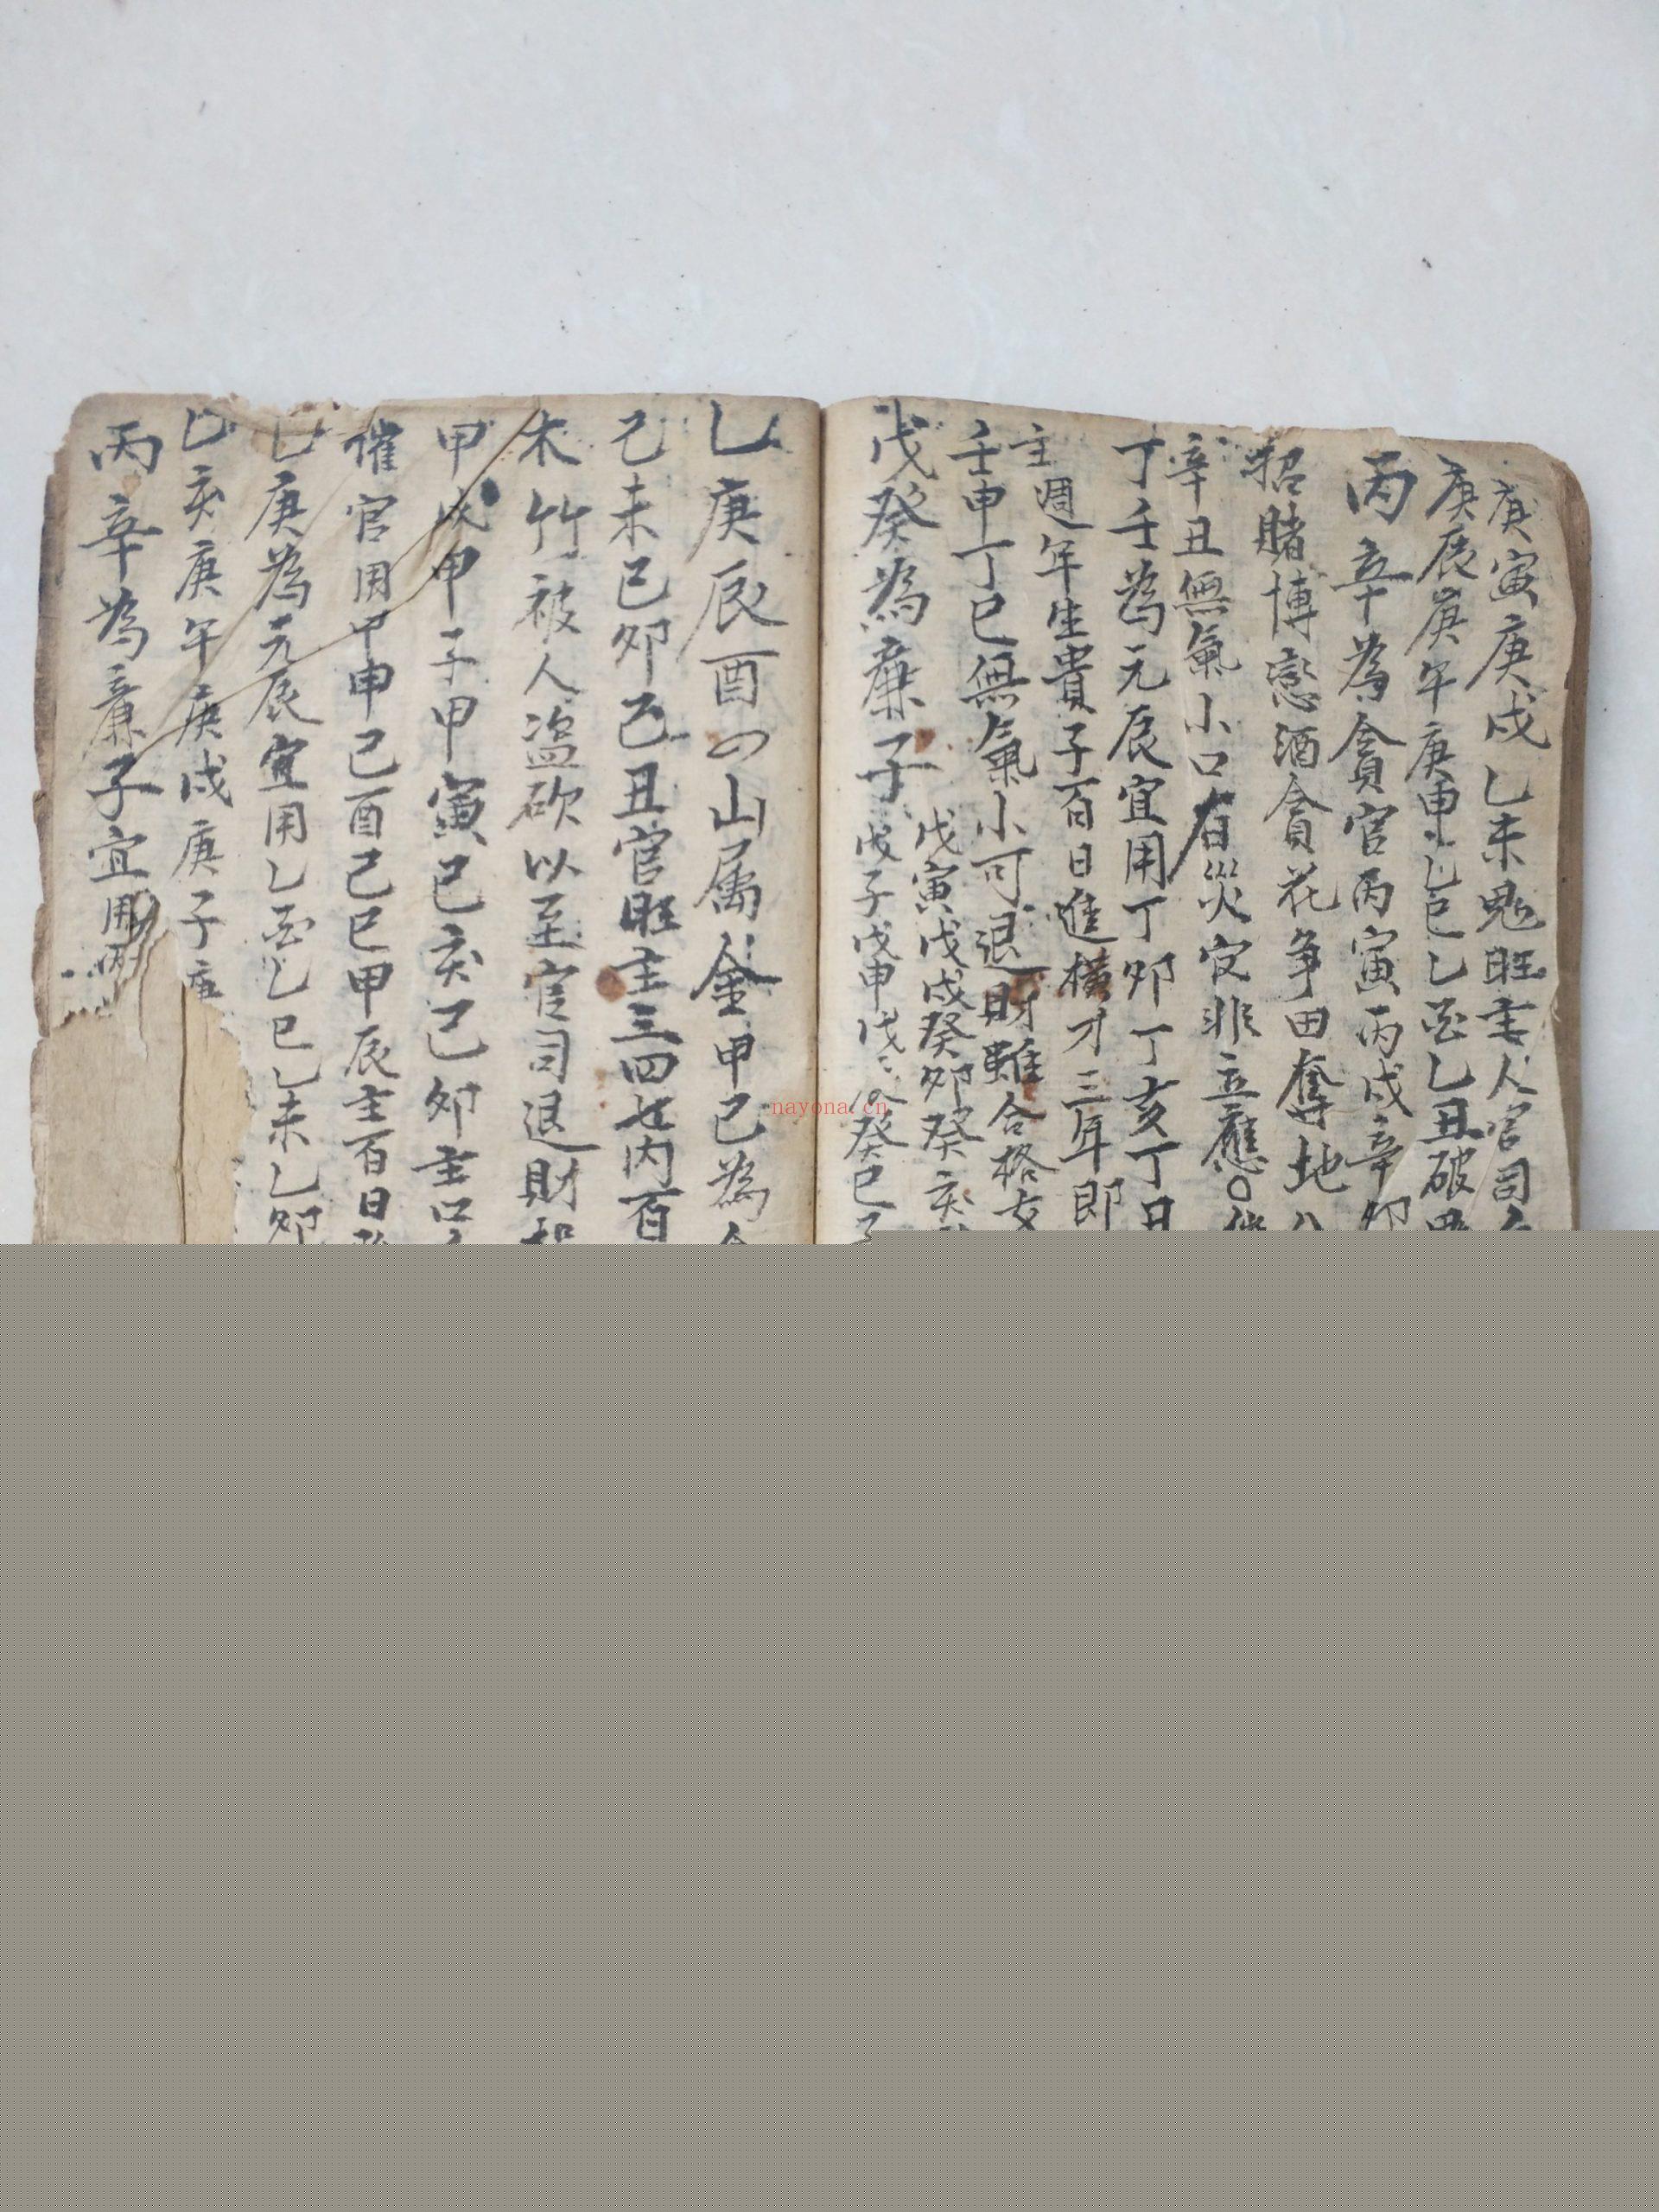 庚寅庚戌乙未鬼旺主人官司
庚辰庚午庚申乙巳乙酉乙丑破
丙辛為貪官丙寅丙戌辛卯
招賭博戀酒貪花爭田奪地
辛丑無氣小口有災官非立應○
丁壬為元辰宜用丁卯丁亥丁丑
主週年生貴子百日進橫才三年即
壬申丁巳無氣小可退財雖合格
戊寅戊戌癸卯癸亥
戊癸為廉子戊子戊申戊 癸巳
乙庚辰酉四山屬金甲己為
己未己卯己丑官旺主三四七內百
木竹被人盜砍以至官司退財
甲戌甲子甲寅己亥己卯主口
催官用甲申己酉己巳甲辰主百日
乙庚為元辰宜用乙酉乙巳乙未乙卯
乙亥庚午庚戌庚子
丙辛為廉子宜用丙
nayona.cn